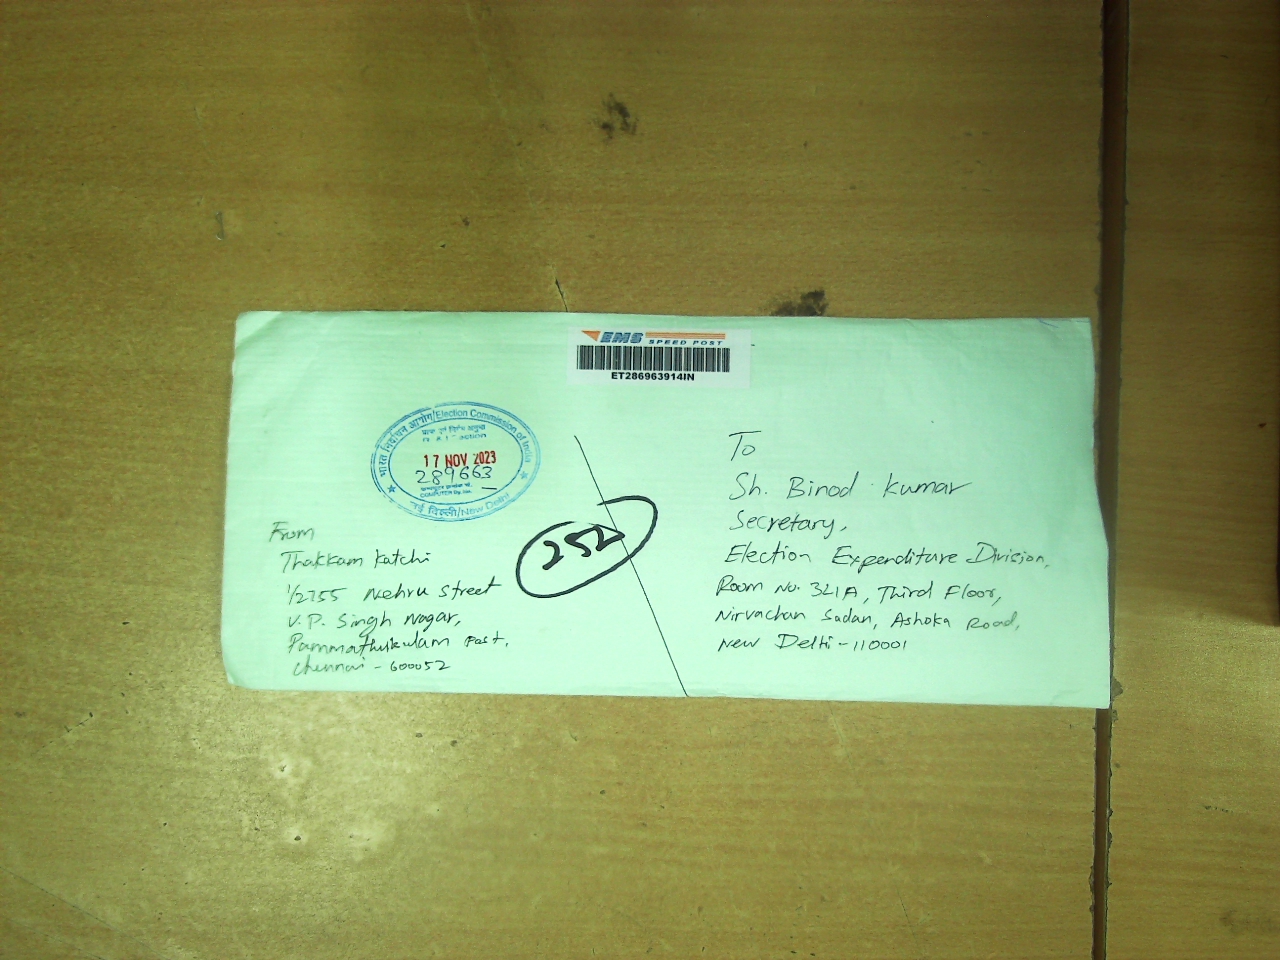 EMS SPEED POST
ET286963914IN
भारत निर्वाचन आयोग/Election Commission of India
17 NOV 2023
289663
COMPUTER
नई दिल्ली/New Delhi
252
From
Thakkam Katchi
1/2755 Nehru Street
V.P. Singh Nagar,
Pammathukulam Post,
Chennai - 600052
To
Sh. Binod Kumar
Secretary,
Election Expenditure Division,
Room No. 321A, Third Floor,
Nirvachan Sadan, Ashoka Road,
New Delhi - 110001